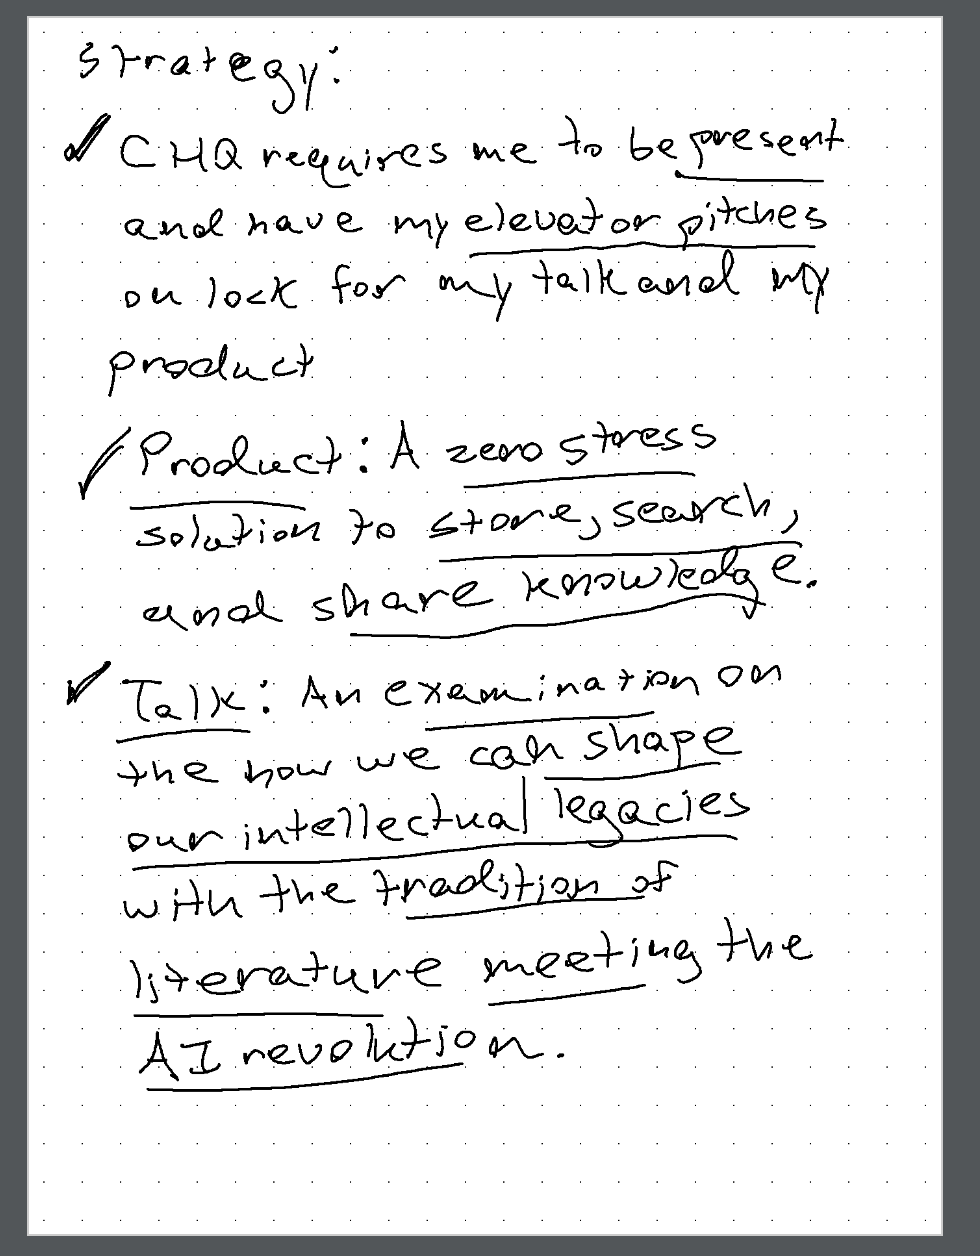 Strategy:
✓ CHQ requires me to be present
and have my elevator pitches
on lock for my talk and my
product
✓ Product: A zero stress
solution to store, search,
and share knowledge.
✓ Talk: An examination on
the how we can shape
our intellectual legacies
with the tradition of
literature meeting the
AI revolution.